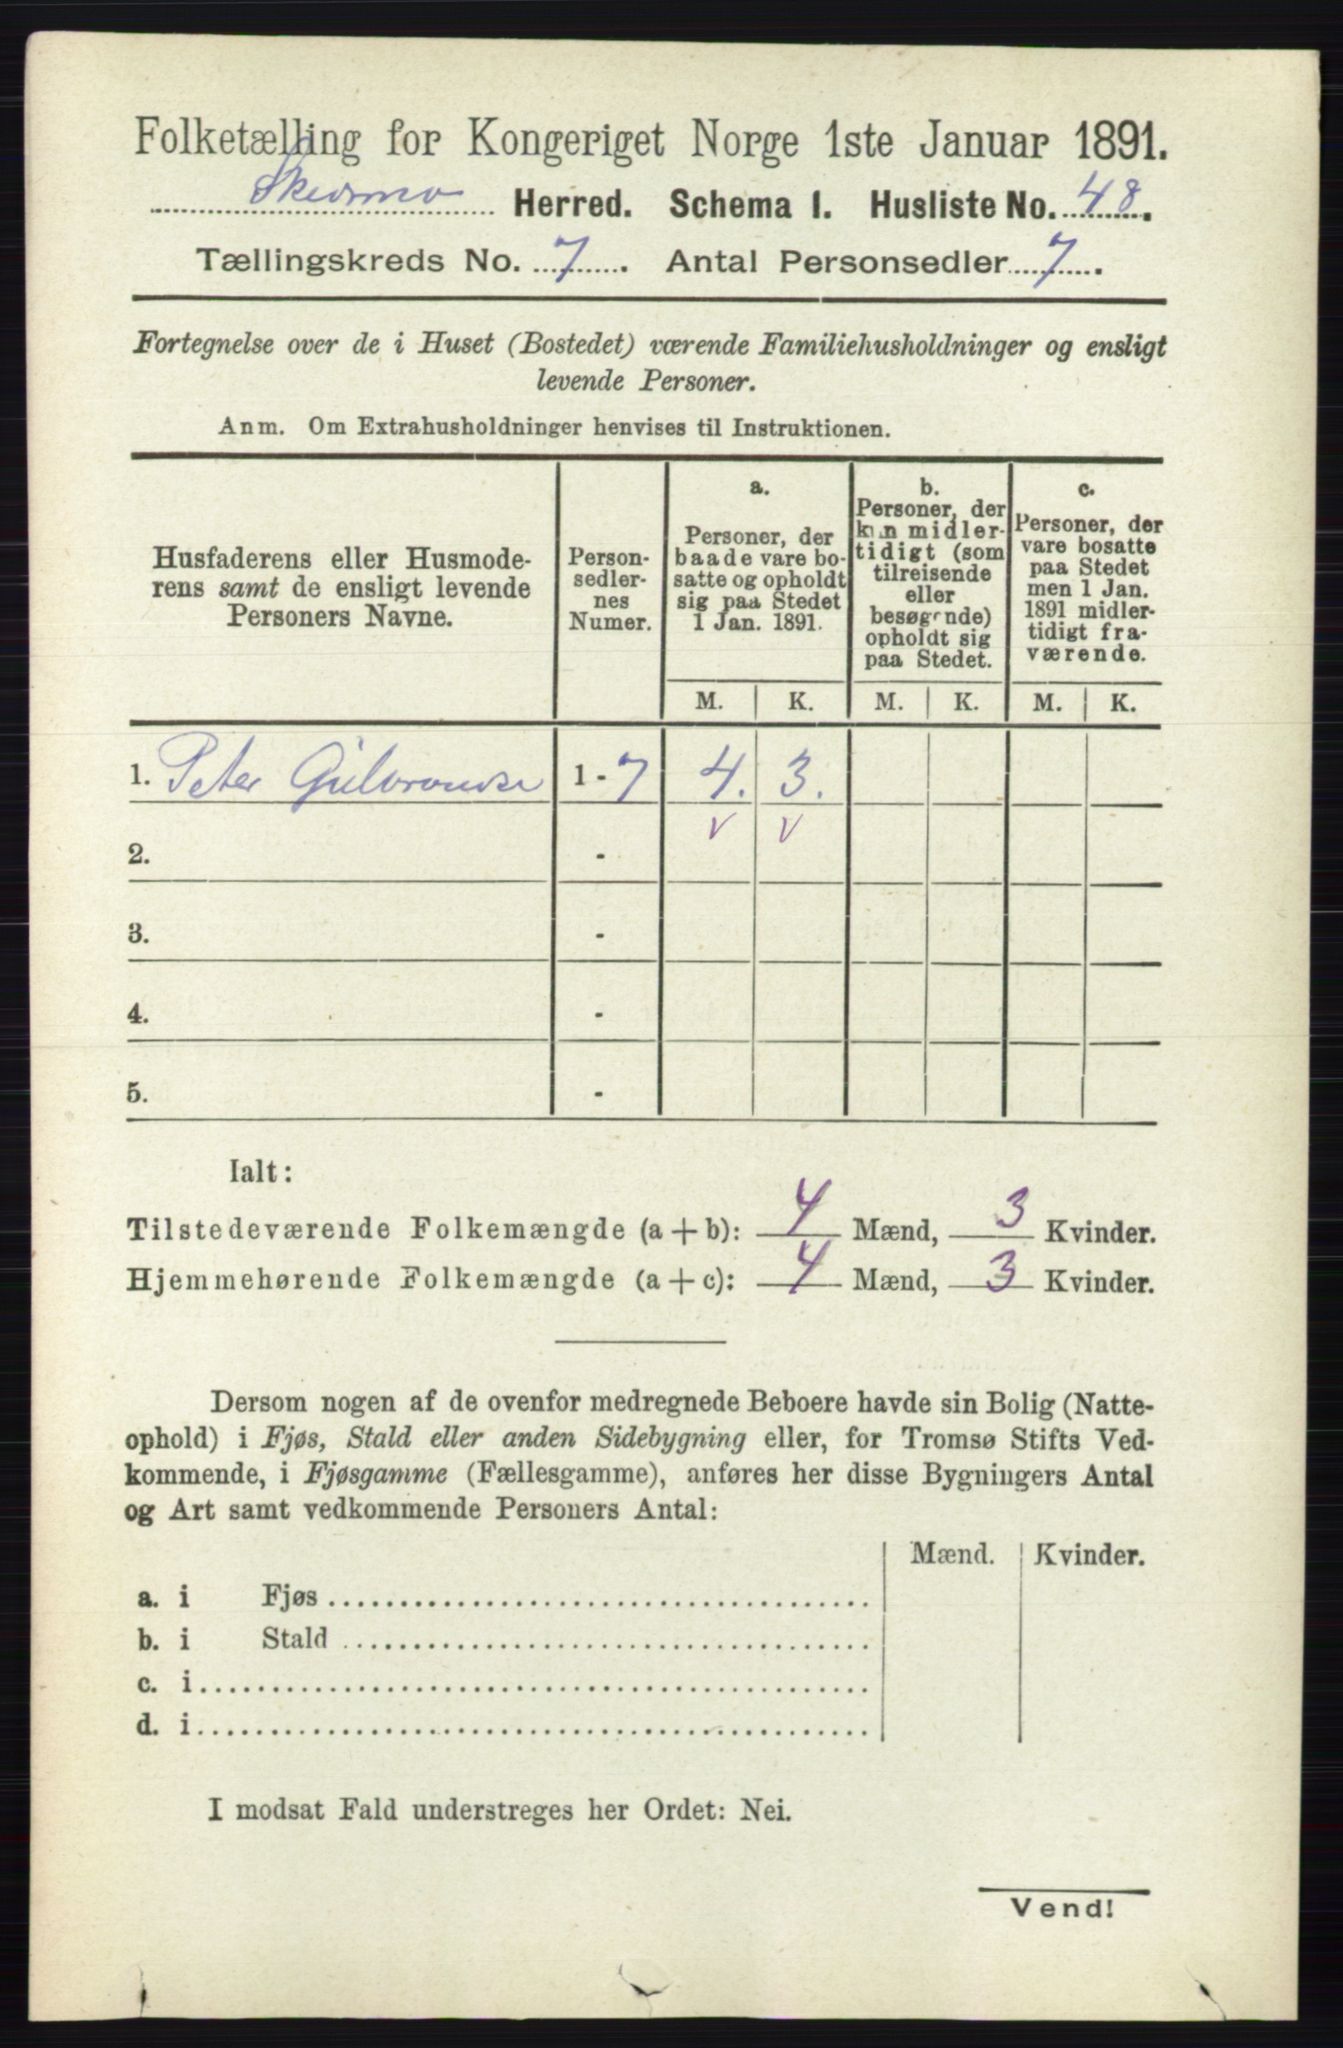 Folketælling for Kongeriget Norge 1ste Januar 1891.
Skedsmo Herred. Schema I. Husliste No. 48.
Tællingskreds No. 7. Antal Personsedler 7.
Fortegnelse over de i Huset (Bostedet) værende Familiehusholdninger og ensligt
levende Personer.
Anm. Om Extrahusholdninger henvises til Instruktionen.
Husfaderens eller Husmode-
rens samt de ensligt levende
Personers Navne.
Person-
sedler-
nes
Numer.
a.
Personer, der
baade vare bo-
satte og opholdt
sig paa Stedet
1 Jan. 1891.
b.
Personer, der
kun midler-
tidigt (som
tilreisende
eller
besøgende)
opholdt sig
paa Stedet.
c.
Personer, der
vare bosatte
paa Stedet
men 1 Jan.
1891 midler-
tidigt fra-
værende.
M. K. M. K. M. K.
1. Peter Gulbrandse 1 - 7 4. 3.
v v
2. -
3. -
4. -
5. -
Ialt:
Tilstedeværende Folkemængde (a + b): 4 Mænd, 3 Kvinder.
Hjemmehørende Folkemængde (a + c): 4 Mænd, 3 Kvinder.
Dersom nogen af de ovenfor medregnede Beboere havde sin Bolig (Natte-
ophold) i Fjøs, Stald eller anden Sidebygning eller, for Tromsø Stifts Ved-
kommende, i Fjøsgamme (Fællesgamme), anføres her disse Bygningers Antal
og Art samt vedkommende Personers Antal:
Mænd. Kvinder.
a. i Fjøs
b. i Stald
c. i
d. i
I modsat Fald understreges her Ordet: Nei.
Vend!